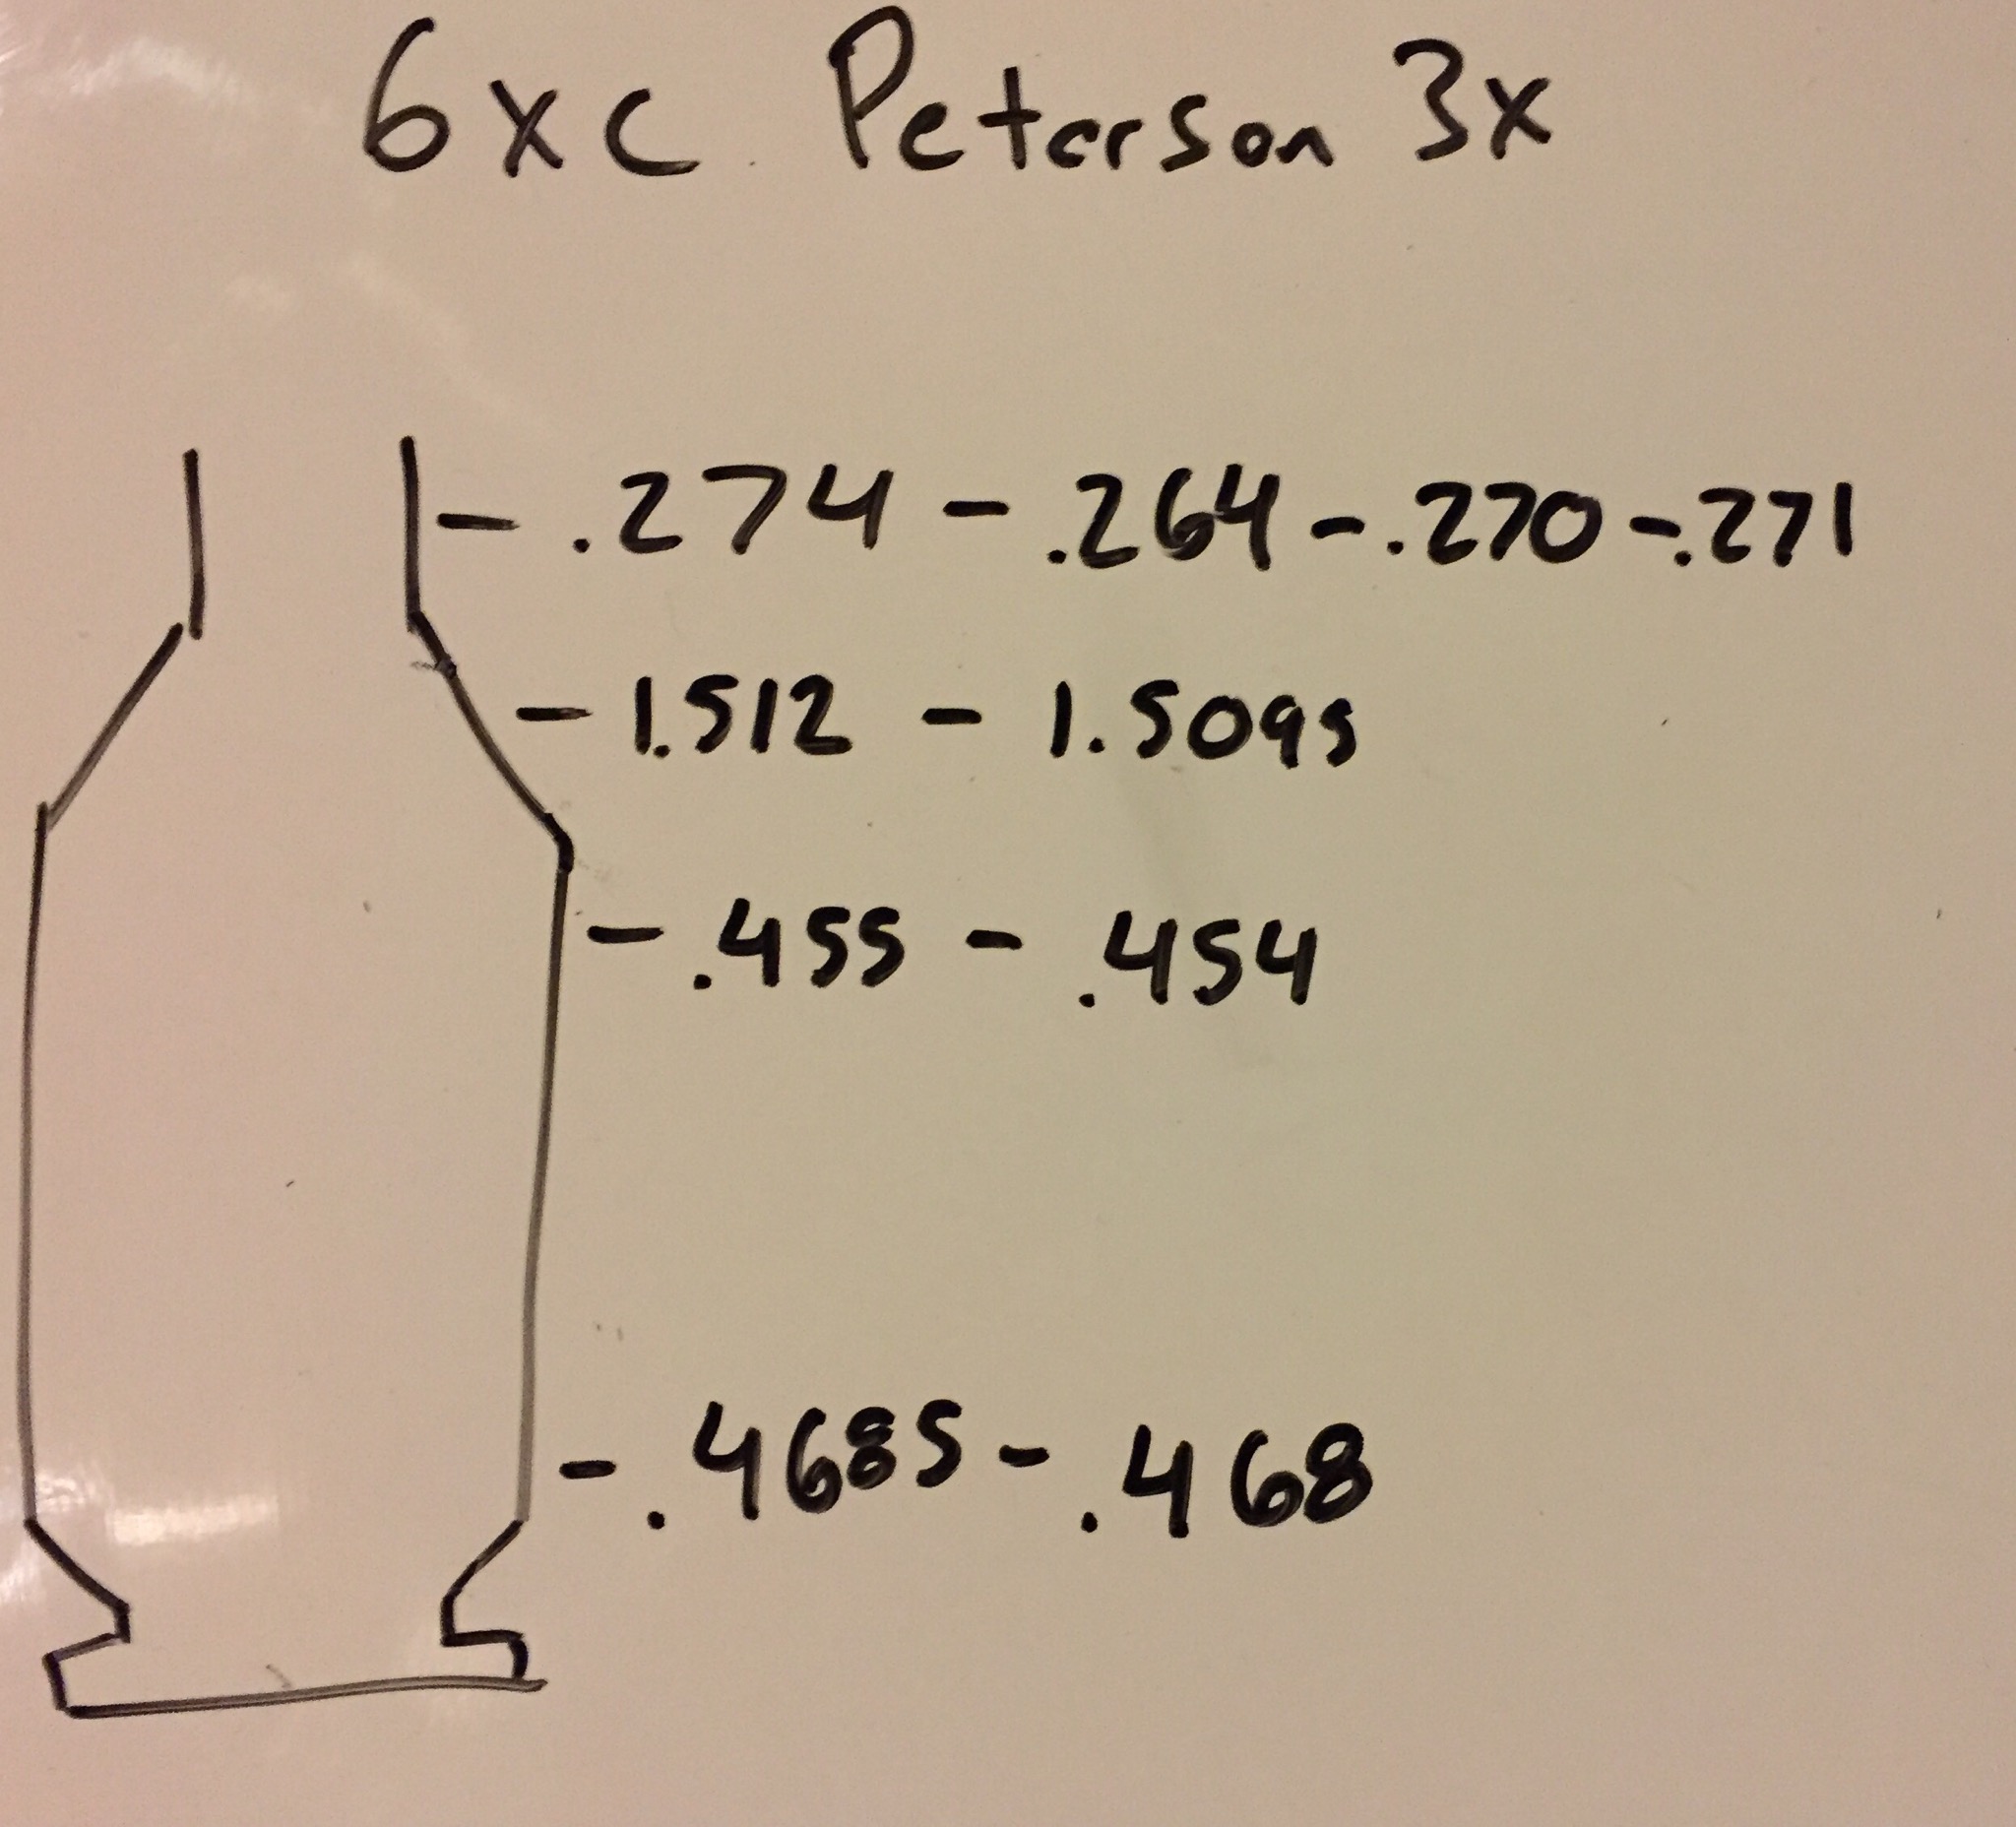 6xc Peterson 3x
- .274 - .264 - .270 - .271
- 1.512 - 1.5095
- .455 - .454
- .4685 - .468